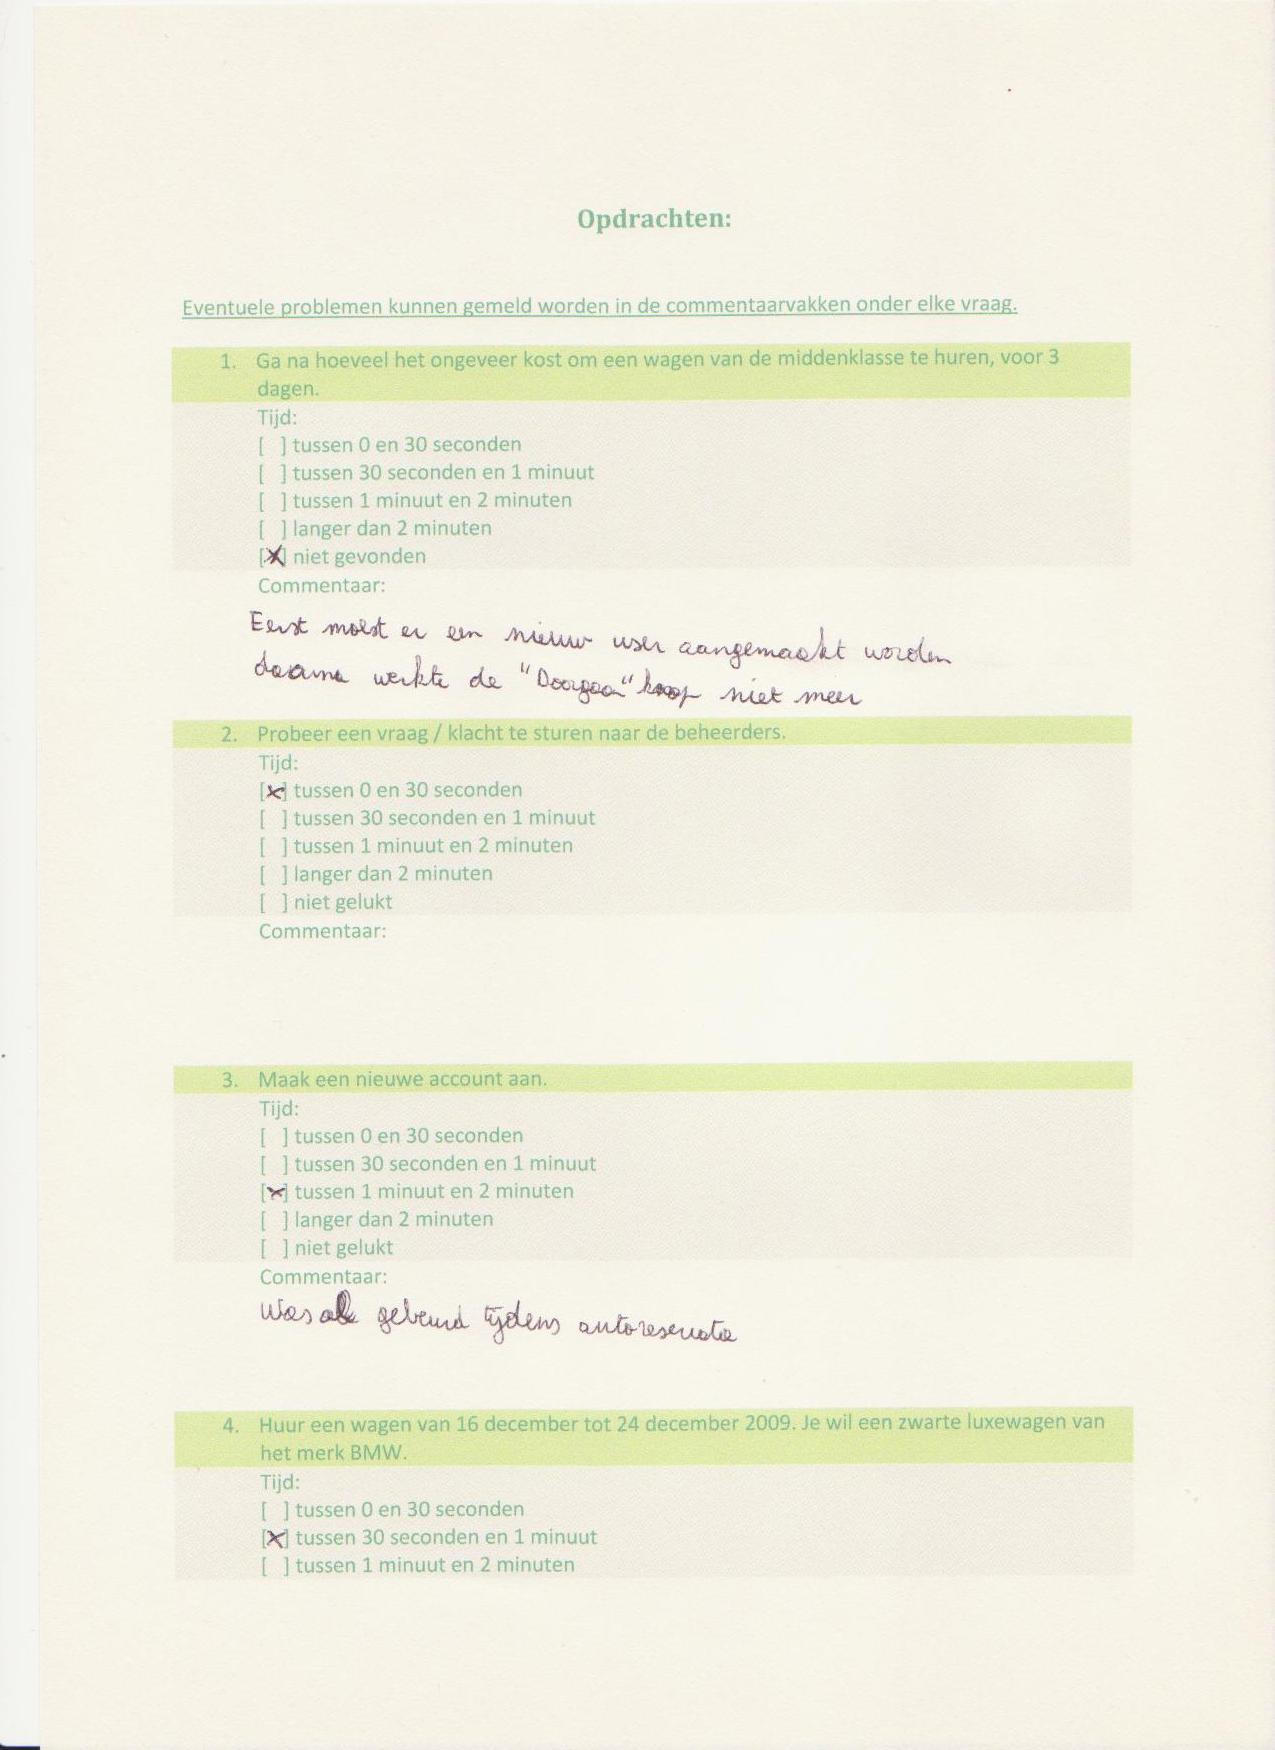 Opdrachten:
Eventuele problemen kunnen gemeld worden in de commentaarvakken onder elke vraag.
1. Ga na hoeveel het ongeveer kost om een wagen van de middenklasse te huren, voor 3
dagen.
Tijd:
[ ] tussen 0 en 30 seconden
[ ] tussen 30 seconden en 1 minuut
[ ] tussen 1 minuut en 2 minuten
[ ] langer dan 2 minuten
[X] niet gevonden
Commentaar:
Eerst moest er een nieuw user aangemaakt worden
daarna werkte de "Doorgaan" knop niet meer
2. Probeer een vraag / klacht te sturen naar de beheerders.
Tijd:
[x] tussen 0 en 30 seconden
[ ] tussen 30 seconden en 1 minuut
[ ] tussen 1 minuut en 2 minuten
[ ] langer dan 2 minuten
[ ] niet gelukt
Commentaar:
3. Maak een nieuwe account aan.
Tijd:
[ ] tussen 0 en 30 seconden
[ ] tussen 30 seconden en 1 minuut
[x] tussen 1 minuut en 2 minuten
[ ] langer dan 2 minuten
[ ] niet gelukt
Commentaar:
Was al gebeurd tijdens autoreservatie
4. Huur een wagen van 16 december tot 24 december 2009. Je wil een zwarte luxewagen van
het merk BMW.
Tijd:
[ ] tussen 0 en 30 seconden
[X] tussen 30 seconden en 1 minuut
[ ] tussen 1 minuut en 2 minuten